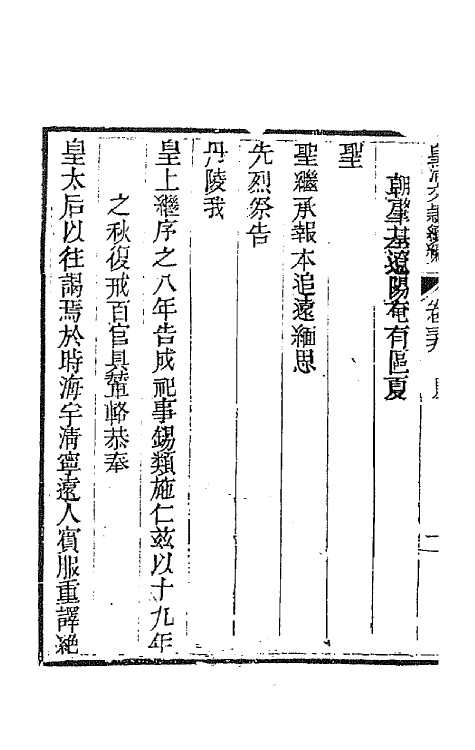 皇淸文潁續編 卷三九
二
朝肇基遼陽奄有區夏
聖
聖繼承報本追遠緬思
先烈祭告
丹陵我
皇上繼序之八年告成祀事錫類施仁兹以十九年
之秋復戒百官具輦輅恭奉
皇太后以往謁焉於時海宇清寧遠人賓服重譯絕